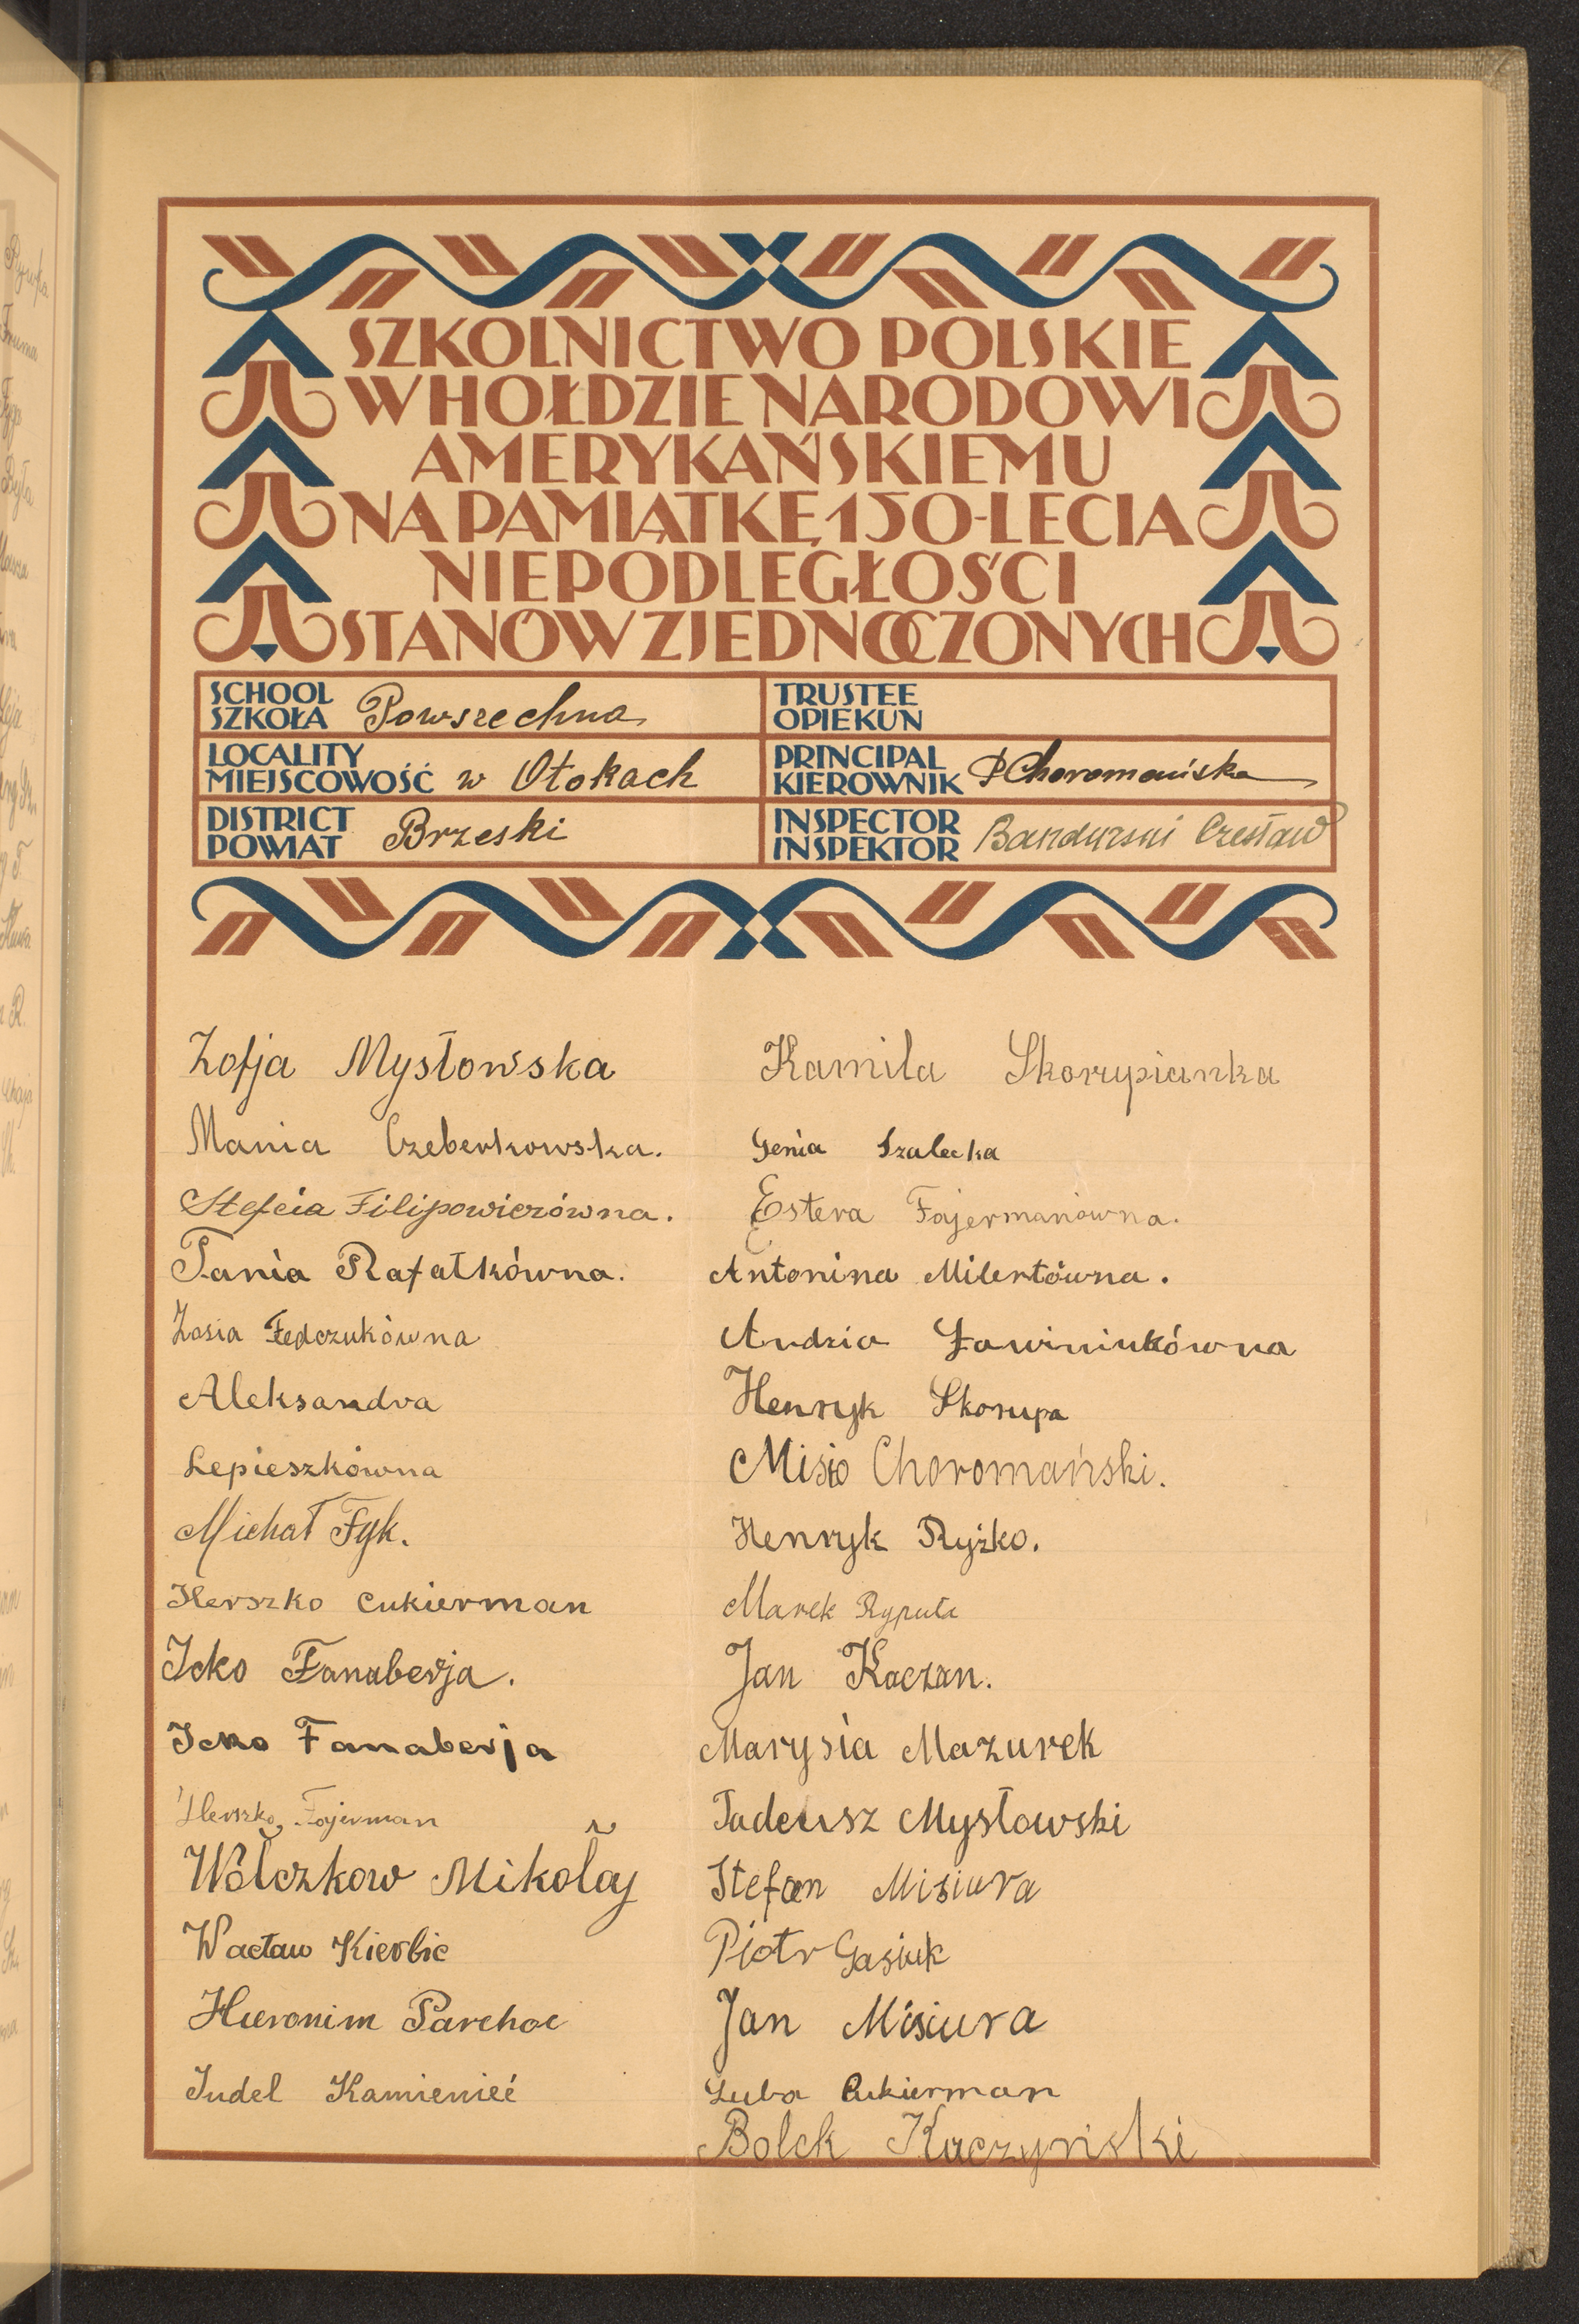 SZKOLNICTWO POLSKIE
W HOŁDZIE NARODOWI
AMERYKAŃSKIEMU
NA PAMIĄTKĘ 150-LECIA
NIEPODLEGŁOŚCI
STANÓW ZJEDNOCZONYCH
SCHOOL
SZKOŁA Powszechna
LOCALITY
MIEJSCOWOŚĆ w Otokach
DISTRICT
POWIAT Brzeski
TRUSTEE
OPIEKUN
PRINCIPAL
KIEROWNIK PChoromańska
INSPECTOR
INSPEKTOR Bandurski Czesław
Zofja Mysłowska
Mania Czeberkowska.
Stefcia Filipowiczówna.
Tania Rafałkówna.
Zosia Fedczukówna
Aleksandra
Lepieszkówna
Michał Fyk.
Herszko Cukierman
Icko Fanaberja.
Icko Fanaberja
Herszko Fajerman
Wołczkow Mikołaj
Wacław Kierbic
Hieronim Parchoc
Judel Kamienieć
Kamila Skorupianka
Genia Szalecka
Estera Fajermanówna.
Antonina Milertówna.
Andzia Ławiniukówna
Henryk Skorupa
Misio Choromański.
Henryk Ryżko.
Marek Ryputa
Jan Kaczan.
Marysia Mazurek
Tadeusz Mysłowski
Stefan Misiura
Piotr Gasiuk
Jan Misiura
Luba Cukierman
Bolek Kaczyński